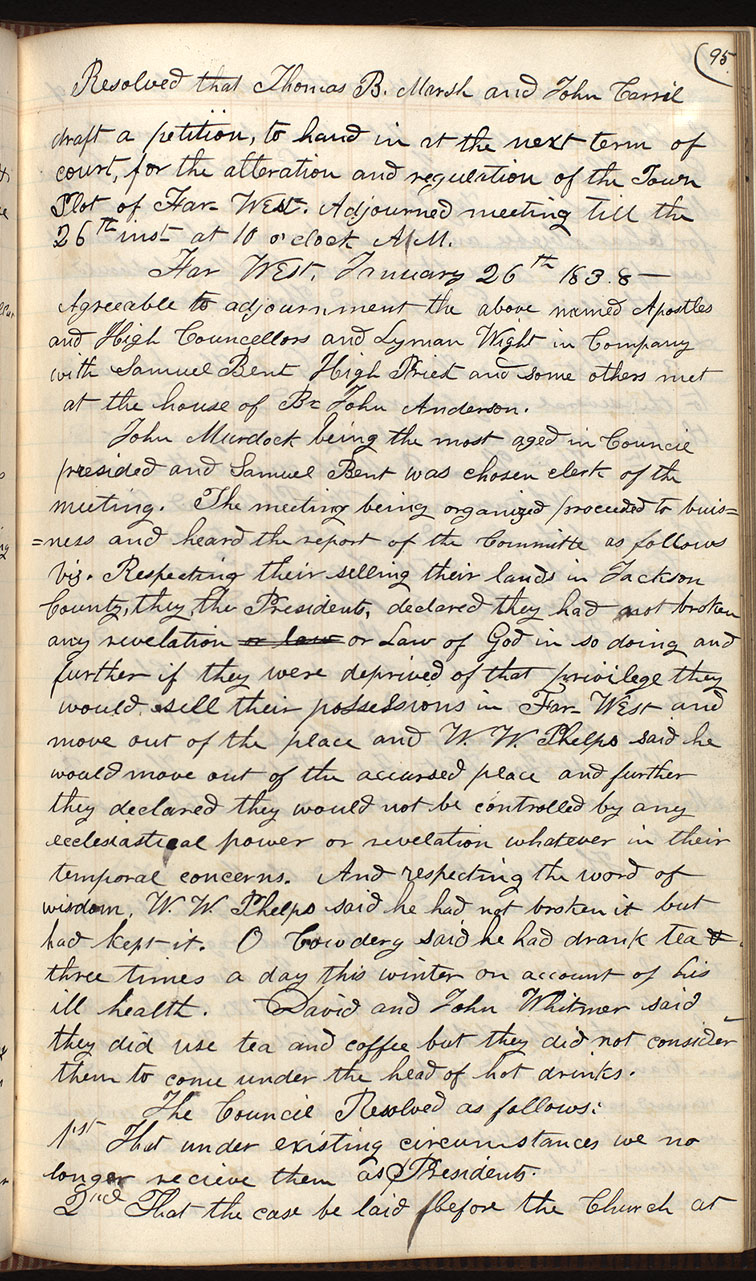 95
Resolved that Thomas B. Marsh and John Carril
draft a petition, to hand in at the next term of
court, for the alteration and regulation of the Town
Plot of Far West. Adjourned meeting till the
26th inst at 10 o'clock A.M.
Far West, January 26th 1838—
Agreeable to adjournment the above named Apostles
and High Councellors and Lyman Wight in Company
with Samuel Bent High Priest and some others met
at the house of Br John Anderson.
John Murdock being the most aged in Council
presided and Samuel Bent was chosen clerk of the
meeting. The meeting being organized proceeded to buis=
=ness and heard the report of the Committe as follows
Viz. Respecting their selling their lands in Jackson
County, they, the Presidents, declared they had not broken
any revelation or law or Law of God in so doing and
further if they were deprived of that privilege they
would sell their possessions in Far West and
move out of the place and W. W. Phelps said he
would move out of the accursed place and further
they declared they would not be controlled by any
ecclesiastical power or revelation whatever in their
temporal concerns. And respecting the word of
wisdom, W. W. Phelps said he had not broken it but
had kept it. O Cowdery said he had drank tea
three times a day this winter on account of his
ill health. David and John Whitmer said
they did use tea and coffee but they did not consider
them to come under the head of hot drinks.
The Council Resolved as follows:
1st That under existing circumstances we no
longer recieve them as Presidents.
2nd That the case be laid before the Church at